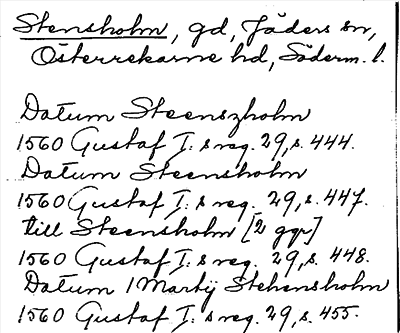 Stensholm, gd, Jäders sn,
Österrekarne hd, Söderm. l.
Datum Steenszholm
1560 Gustaf I: s reg. 29, s. 444.
Datum Steensholm
1560 Gustaf I: s reg. 29, s. 447.
till Steensholm [2 ggr]
1560 Gustaf I: s reg. 29, s. 448.
Datum 1 Martij Stehensholm
1560 Gustaf I: s reg. 29, s. 455.